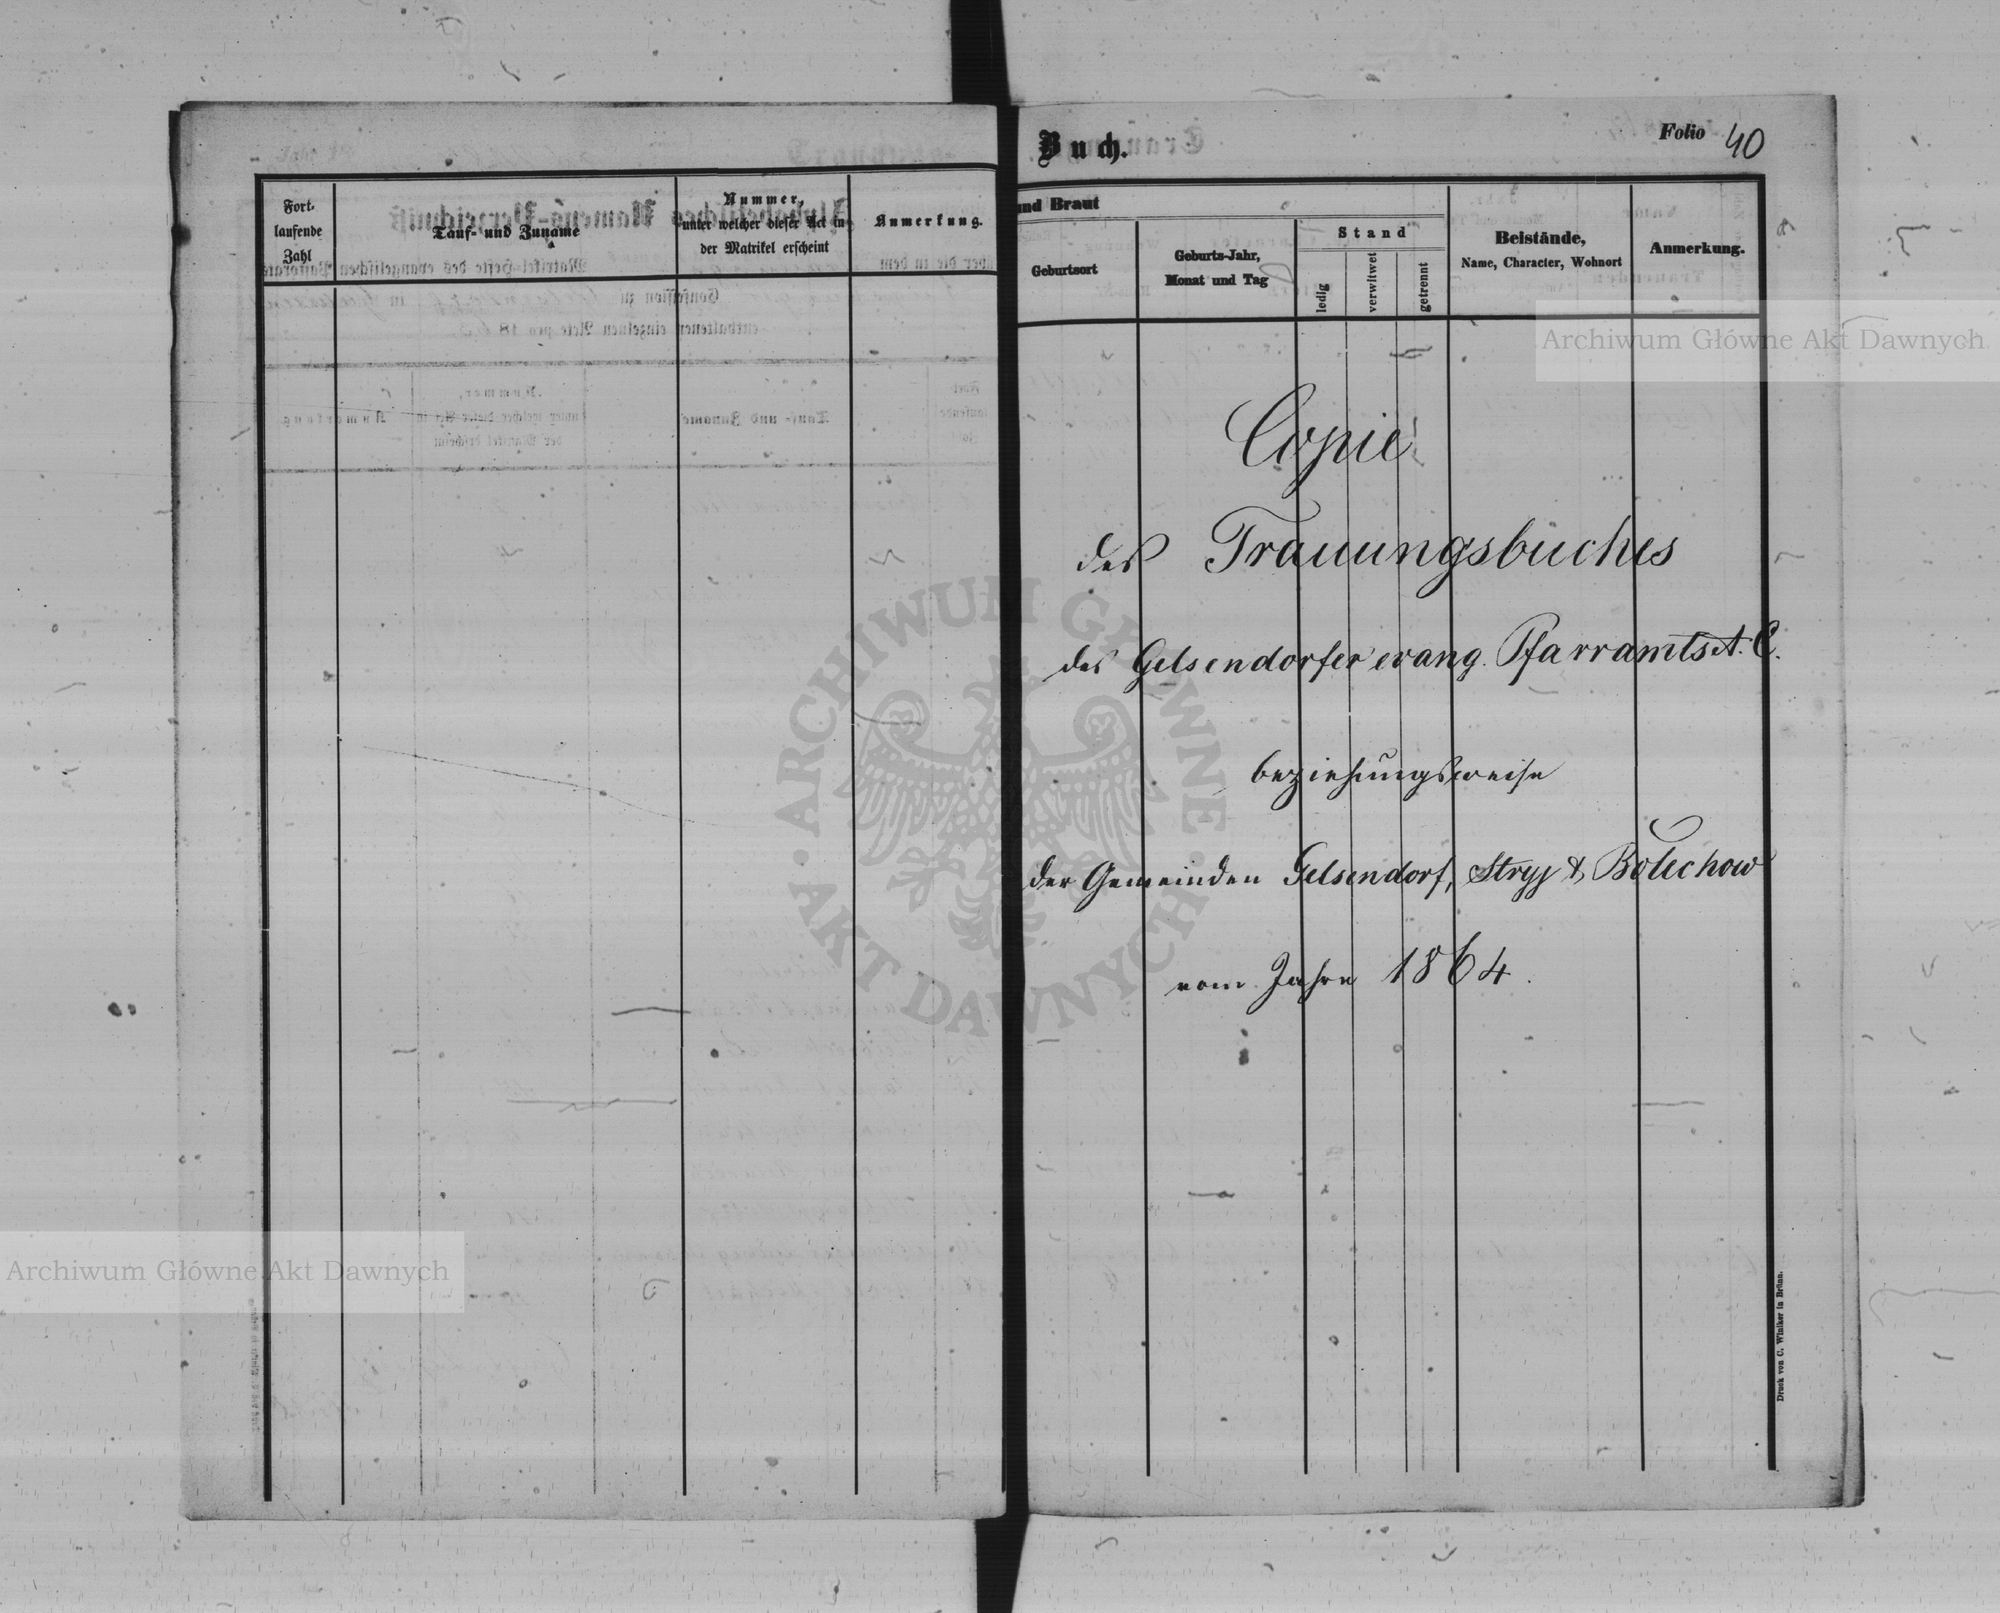 Fort-
laufende
Zahl
Tauf- und Zuname
Nummer,
unter welcher dieser Act in
der Matrikel erscheint
Anmerkung.
Buch.
Folio 40
und Braut
Geburtsort
Geburts-Jahr,
Monat und Tag
Stand
ledig
verwitwet
getrennt
Beistände,
Name, Character, Wohnort
Anmerkung.
Copie
des Trauungsbuches
des Gelsendorfer evang. Pfarramts A. C.
beziehungsweise
der Gemeinden Gelsendorf, Stryj & Bolechow
vom Jahre 1864.
Druck von C. Winiker in Brünn.
Archiwum Główne Akt Dawnych
Archiwum Główne Akt Dawnych
ARCHIWUM GŁÓWNE · AKT DAWNYCH ·